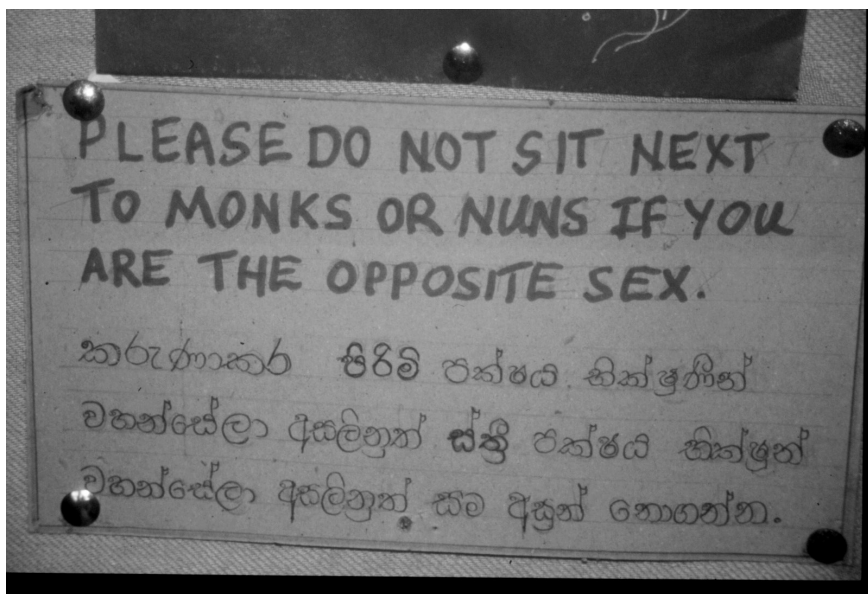 PLEASE DO NOT SIT NEXT
TO MONKS OR NUNS IF YOU
ARE THE OPPOSITE SEX.
කරුණාකර පිරිමි පක්ෂය භික්ෂුණීන්
වහන්සේලා අසලිනුත් ස්ත්‍රී පක්ෂය භික්ෂූන්
වහන්සේලා අසලිනුත් සම අසුන් නොගන්න.